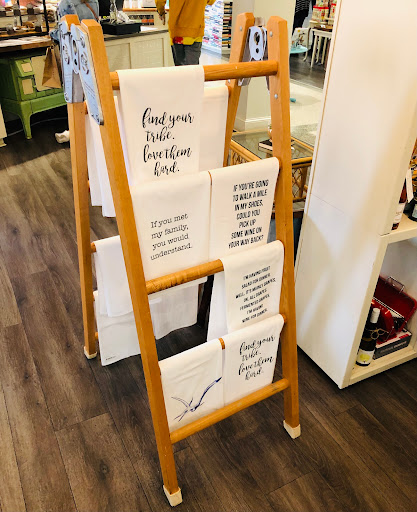 find your
tribe.
love them
hard.
If you met
my family,
you would
understand.
IF YOU'RE GOING
TO WALK A MILE
IN MY SHOES,
COULD YOU
PICK UP
SOME WINE ON
YOUR WAY BACK?
I'M HAVING FRUIT
SALAD FOR DINNER.
WELL, IT'S MOSTLY GRAPES.
OK, ALL GRAPES.
FERMENTED GRAPES.
I'M HAVING
WINE FOR DINNER.
find your
tribe.
love them
hard.